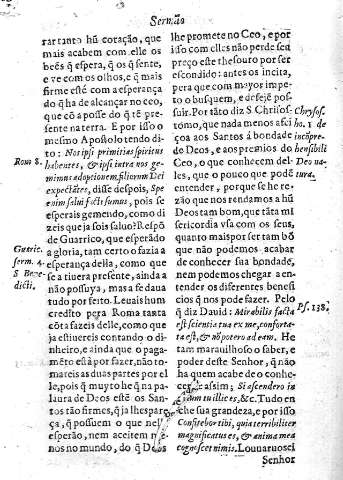 Sermão
rar tanto hũ coração, que
mais acabem com elle os
beẽs q̃ espera, q̃ os q̃ sente,
e ve com os olhos, e q̃ mais
firme esté com a esperança
do q̃ ha de alcançar no ceo,
que cõ a posse do q̃ tẽ pre-
sente na terra. E por isso o
mesmo Apostolo tendo di-
to: Nos ipsi primitias spiritus
habentes, & ipsi intra nos ge-
mimus adoptionem filiorum Dei
expectãtes, disse despois, Spe
enim salui facti sumus, pois se
esperais gemendo, como di
zeis que ja sois saluo? Respõ
de Guarrico, que esperãdo
a gloria, tam certo a fazia a
esperança della, como que
se a tiuera presente, ainda a
não possuya, mas a fe daua
tudo por feito. Leuais hum
credito pera Roma tanta
cõta fazeis delle, como que
ja estiuereis contando o di-
nheiro, e ainda que o paga-
mẽto està por fazer, não to-
mareis as duas partes por el
le, pois q̃ muyto he q̃ na pa-
laura de Deos estè os San-
tos tão firmes, q̃ ja lhes pare-
ça, q̃ possuem o que nel
esperão, nem aceitem
nos no mundo, do q̃ Deos
Rom 8.
Gueric.
serm. 4.
S Bene
dicti.
lhe promete no Ceo, e por
isso com elles não perde seu
preço este thesouro por ser
escondido: antes os incita,
pera que com mayor impe-
to o busquem, e desejẽ pos-
suir. Por tãto diz S Chrisos-
tomo, que nada menos alcã
ça aos Santos á bondade
de Deos, e aos premios do
Ceo, o que conhecem del-
les, que o pouco que podẽ
entender, porque se he re-
zão que nos rendamos a hũ
Deos tam bom, que tãta mi
sericordia vsa com os seus,
quanto mais por ser tam bõ
que não podemos acabar
de conhecer sua bondade,
nem podemos chegar a en-
tender os diferentes benefi
cios q̃ nos pode fazer. Pelo
q̃ diz Dauid: Mirabilis facta
est scientia tua ex me, conforta-
ta est, & nõ potero ad eam. He
tam marauilhoso o saber, e
poder deste Senhor, q̃ não
ha quem acabe de o conhe-
cer e assim; Si ascendero in
cælum tu illic es, &c. Tudo en
che sua grandeza, e por isso
Confitebor tibi, quia terribiliter
magnificatus es, & anima mea
cognoscet nimis. Louuaruosei
Chrysos.
ho. 1 de
incõpre-
hensibili
Dei na-
tura.
Ps. 138.
Senhor